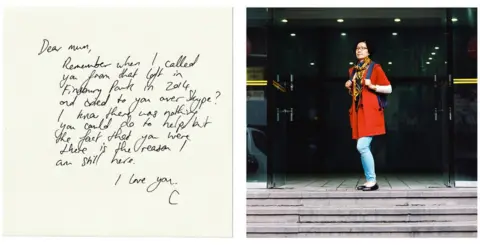 Dear mum,
Remember when I called
you from that loft in
Finsbury Park in 2014
and cried to you over Skype?
I know there was nothing
you could do to help but
the fact that you were
there is the reason I
am still here.
I love you.
C